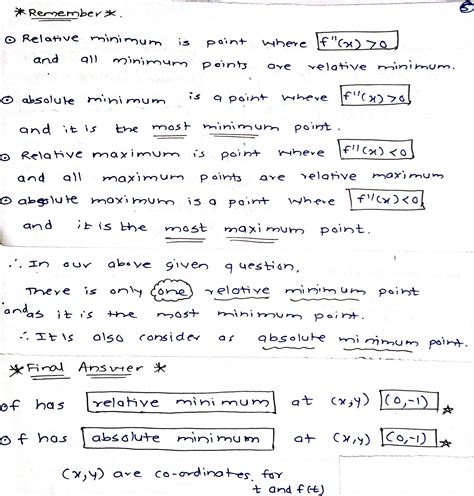 *Remember*. 5
⊙ Relative minimum is point where f''(x) > 0
and all minimum points are relative minimum.
⊙ absolute minimum is a point where f''(x) > 0
and it is the most minimum point.
⊙ Relative maximum is point where f''(x) < 0
and all maximum points are relative maximum
⊙ absolute maximum is a point where f''(x) < 0
and it is the most maximum point.
∴ In our above given question,
There is only one relative minimum point
and as it is the most minimum point.
∴ It is also consider as absolute minimum point.
* Final Answer *
⊙ f has relative minimum at (x,y) (0,-1) ☆
⊙ f has absolute minimum at (x,y) (0,-1) ☆
(x,y) are co-ordinates for
t and f(t)